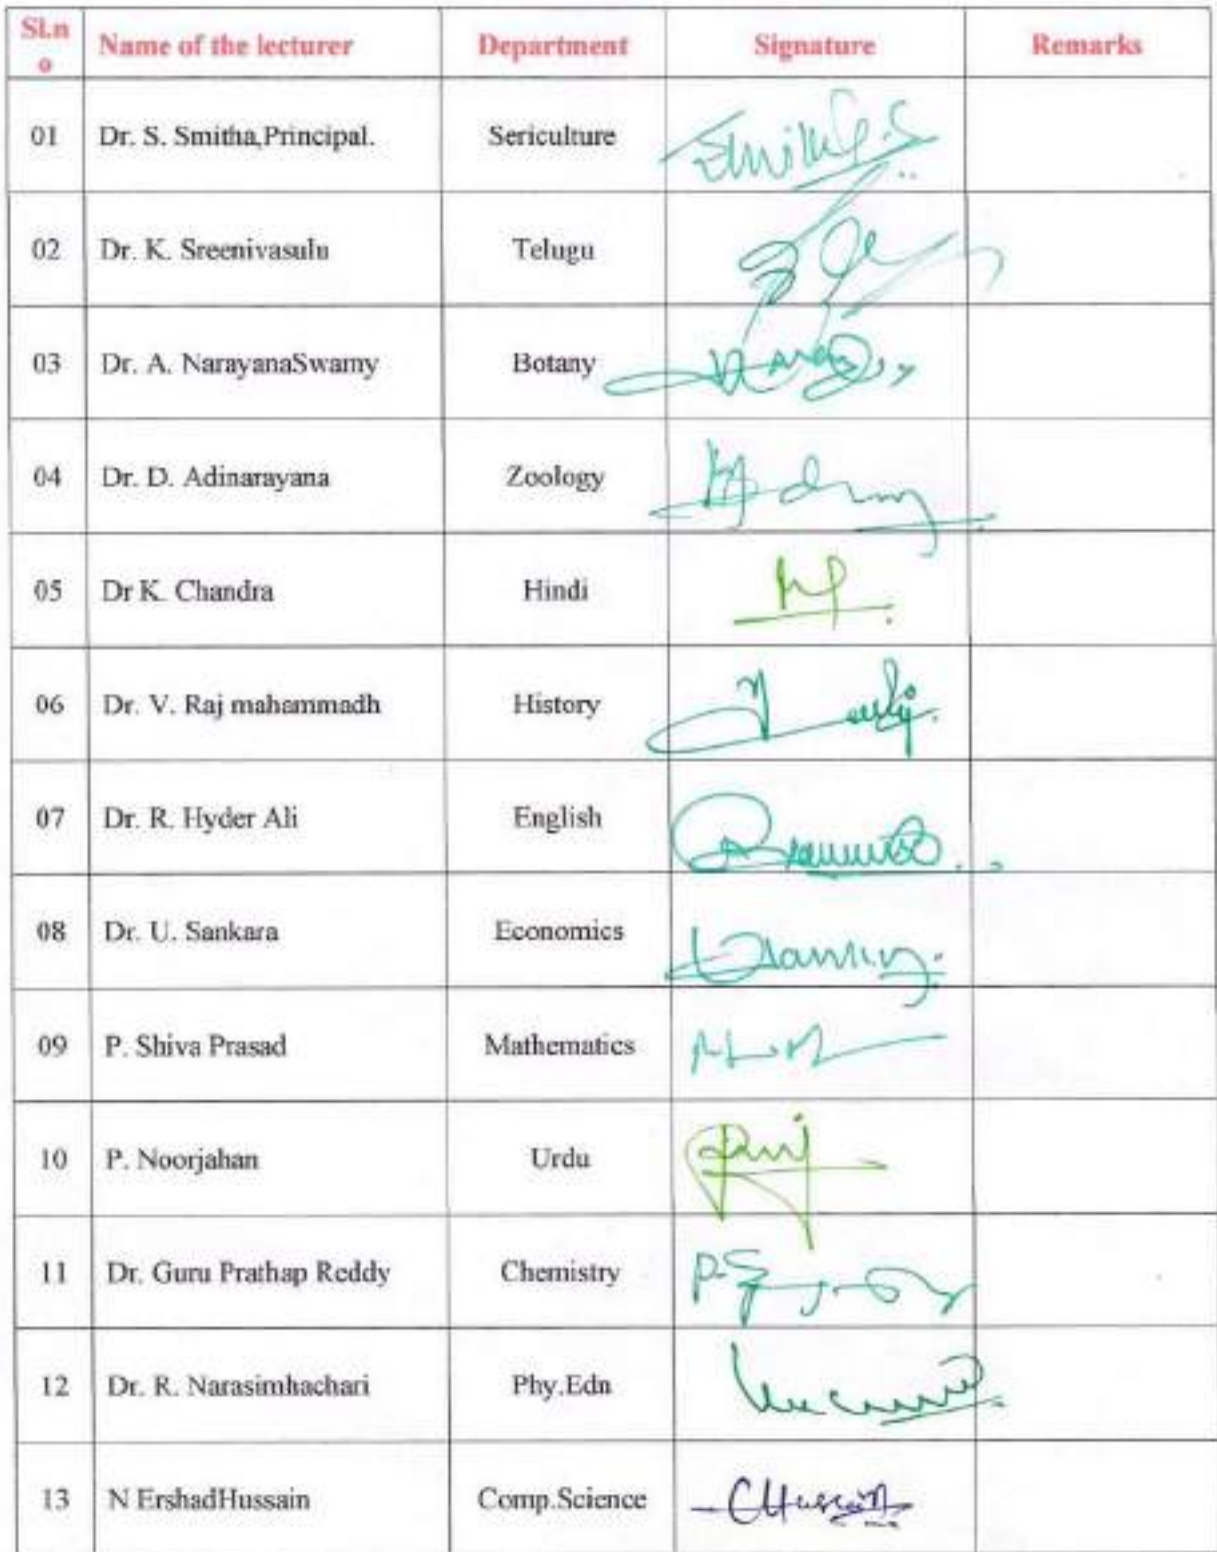 Sl.n
o Name of the lecturer Department Signature Remarks
01 Dr. S. Smitha,Principal. Sericulture
02 Dr. K. Sreenivasulu Telugu
03 Dr. A. NarayanaSwamy Botany
04 Dr. D. Adinarayana Zoology
05 Dr K. Chandra Hindi
06 Dr. V. Raj mahammadh History
07 Dr. R. Hyder Ali English
08 Dr. U. Sankara Economics
09 P. Shiva Prasad Mathematics
10 P. Noorjahan Urdu
11 Dr. Guru Prathap Reddy Chemistry
12 Dr. R. Narasimhachari Phy.Edn
13 N ErshadHussain Comp.Science